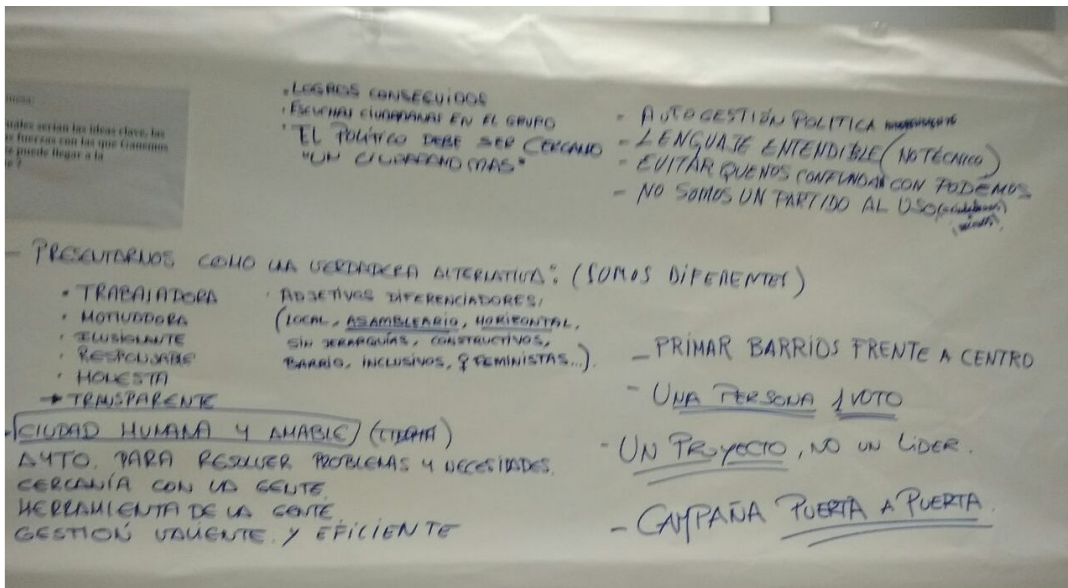 uales serían las ideas clave, las
fuerzas con las que Ganemos
puede llegar a la
. LOGROS CONSEGUIDOS
. ESCUCHAS CIUDADANAS EN EL GRUPO
· EL POLÍTICO DEBE SER CERCANO
"UN CIUDADANO MAS"
- AUTOGESTIÓN POLITICA
- LENGUAJE ENTENDIBLE (NO TÉCNICO)
- EVITAR QUE NOS CONFUNDAN CON PODEMOS
- NO SOMOS UN PARTIDO AL USO
- PRESENTARNOS COMO LA VERDADERA ALTERNATIVA: (SOMOS DIFERENTES)
· TRABAJADORA
· MOTIVADORA
· ILUSIONANTE
· RESPONSABLE
· HONESTA
→ TRANSPARENTE
· ADJETIVOS DIFERENCIADORES:
(LOCAL, ASAMBLEARIO, HORIZONTAL,
SIN JERARQUÍAS, CONSTRUCTIVOS,
BARRIO, INCLUSIVOS, ♀ FEMINISTAS...).
. CIUDAD HUMANA Y AMABLE
AYTO. PARA RESOLVER PROBLEMAS Y NECESIDADES.
CERCANÍA CON LA GENTE.
HERRAMIENTA DE LA GENTE.
GESTIÓN VALIENTE. Y EFICIENTE
- PRIMAR BARRIOS FRENTE A CENTRO
- UNA PERSONA 1 VOTO
- UN PROYECTO, NO UN LÍDER.
- CAMPAÑA PUERTA A PUERTA.